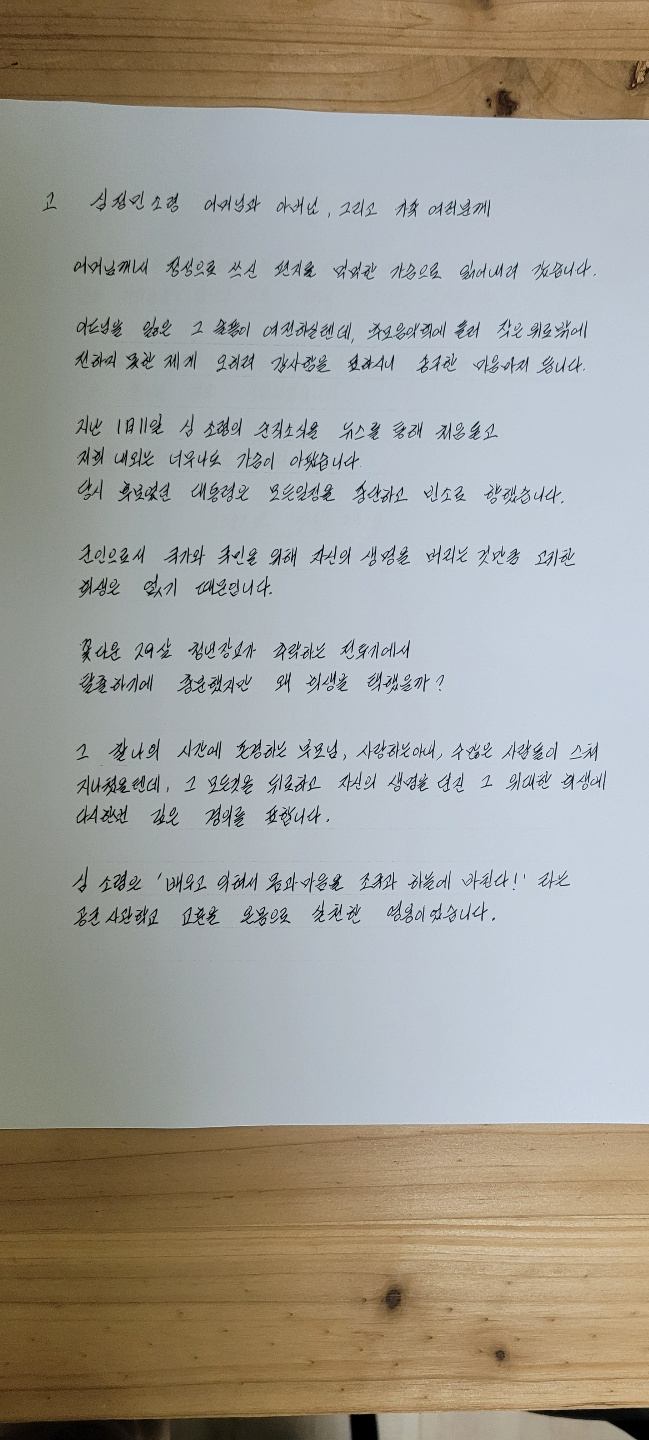 고 심정민소령 어머님과 아버님, 그리고 가족 여러분께
어머님께서 정성으로 쓰신 편지를 먹먹한 가슴으로 읽어내려 갔습니다.
아드님을 잃은 그 슬픔이 여전하실텐데, 추모음악회에 들러 작은 위로밖에
전하지 못한 제게 오히려 감사함을 표하시니 송구한 마음마저 듭니다.
지난 1월11일 심 소령의 순직소식을 뉴스를 통해 처음듣고
저희 내외는 너무나도 가슴이 아팠습니다.
당시 후보였던 대통령은 모든일정을 중단하고 빈소로 향했습니다.
군인으로서 국가와 국민을 위해 자신의 생명을 버리는 것만큼 고귀한
희생은 없기 때문입니다.
꽃다운 29살 청년장교가 추락하는 전투기에서
탈출하기에 충분했지만 왜 희생을 택했을까?
그 찰나의 시간에 존경하는 부모님, 사랑하는아내, 수많은 사람들이 스쳐
지나쳤을텐데, 그 모든것을 뒤로하고 자신의 생명을 던진 그 위대한 희생에
다시한번 깊은 경의를 표합니다.
심 소령은 '배우고 익혀서 몸과마음을 조국과 하늘에 바친다!' 라는
공군사관학교 교훈을 온몸으로 실천한 영웅이었습니다.